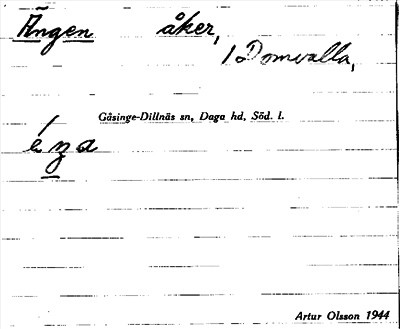 Ängen åker,
/ Domvalla,
Gåsinge-Dillnäs sn, Daga hd, Söd. l.
Artur Olsson 1944